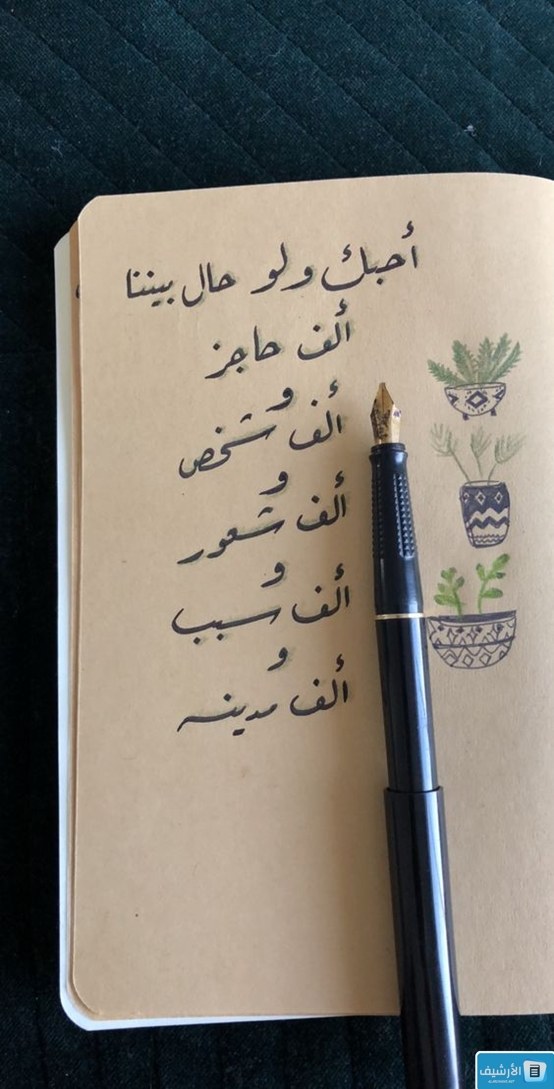 أحبك ولو حال بيننا
ألف حاجز
و
ألف شخص
و
ألف شعور
و
ألف سبب
و
ألف مدينه
الأرشيف